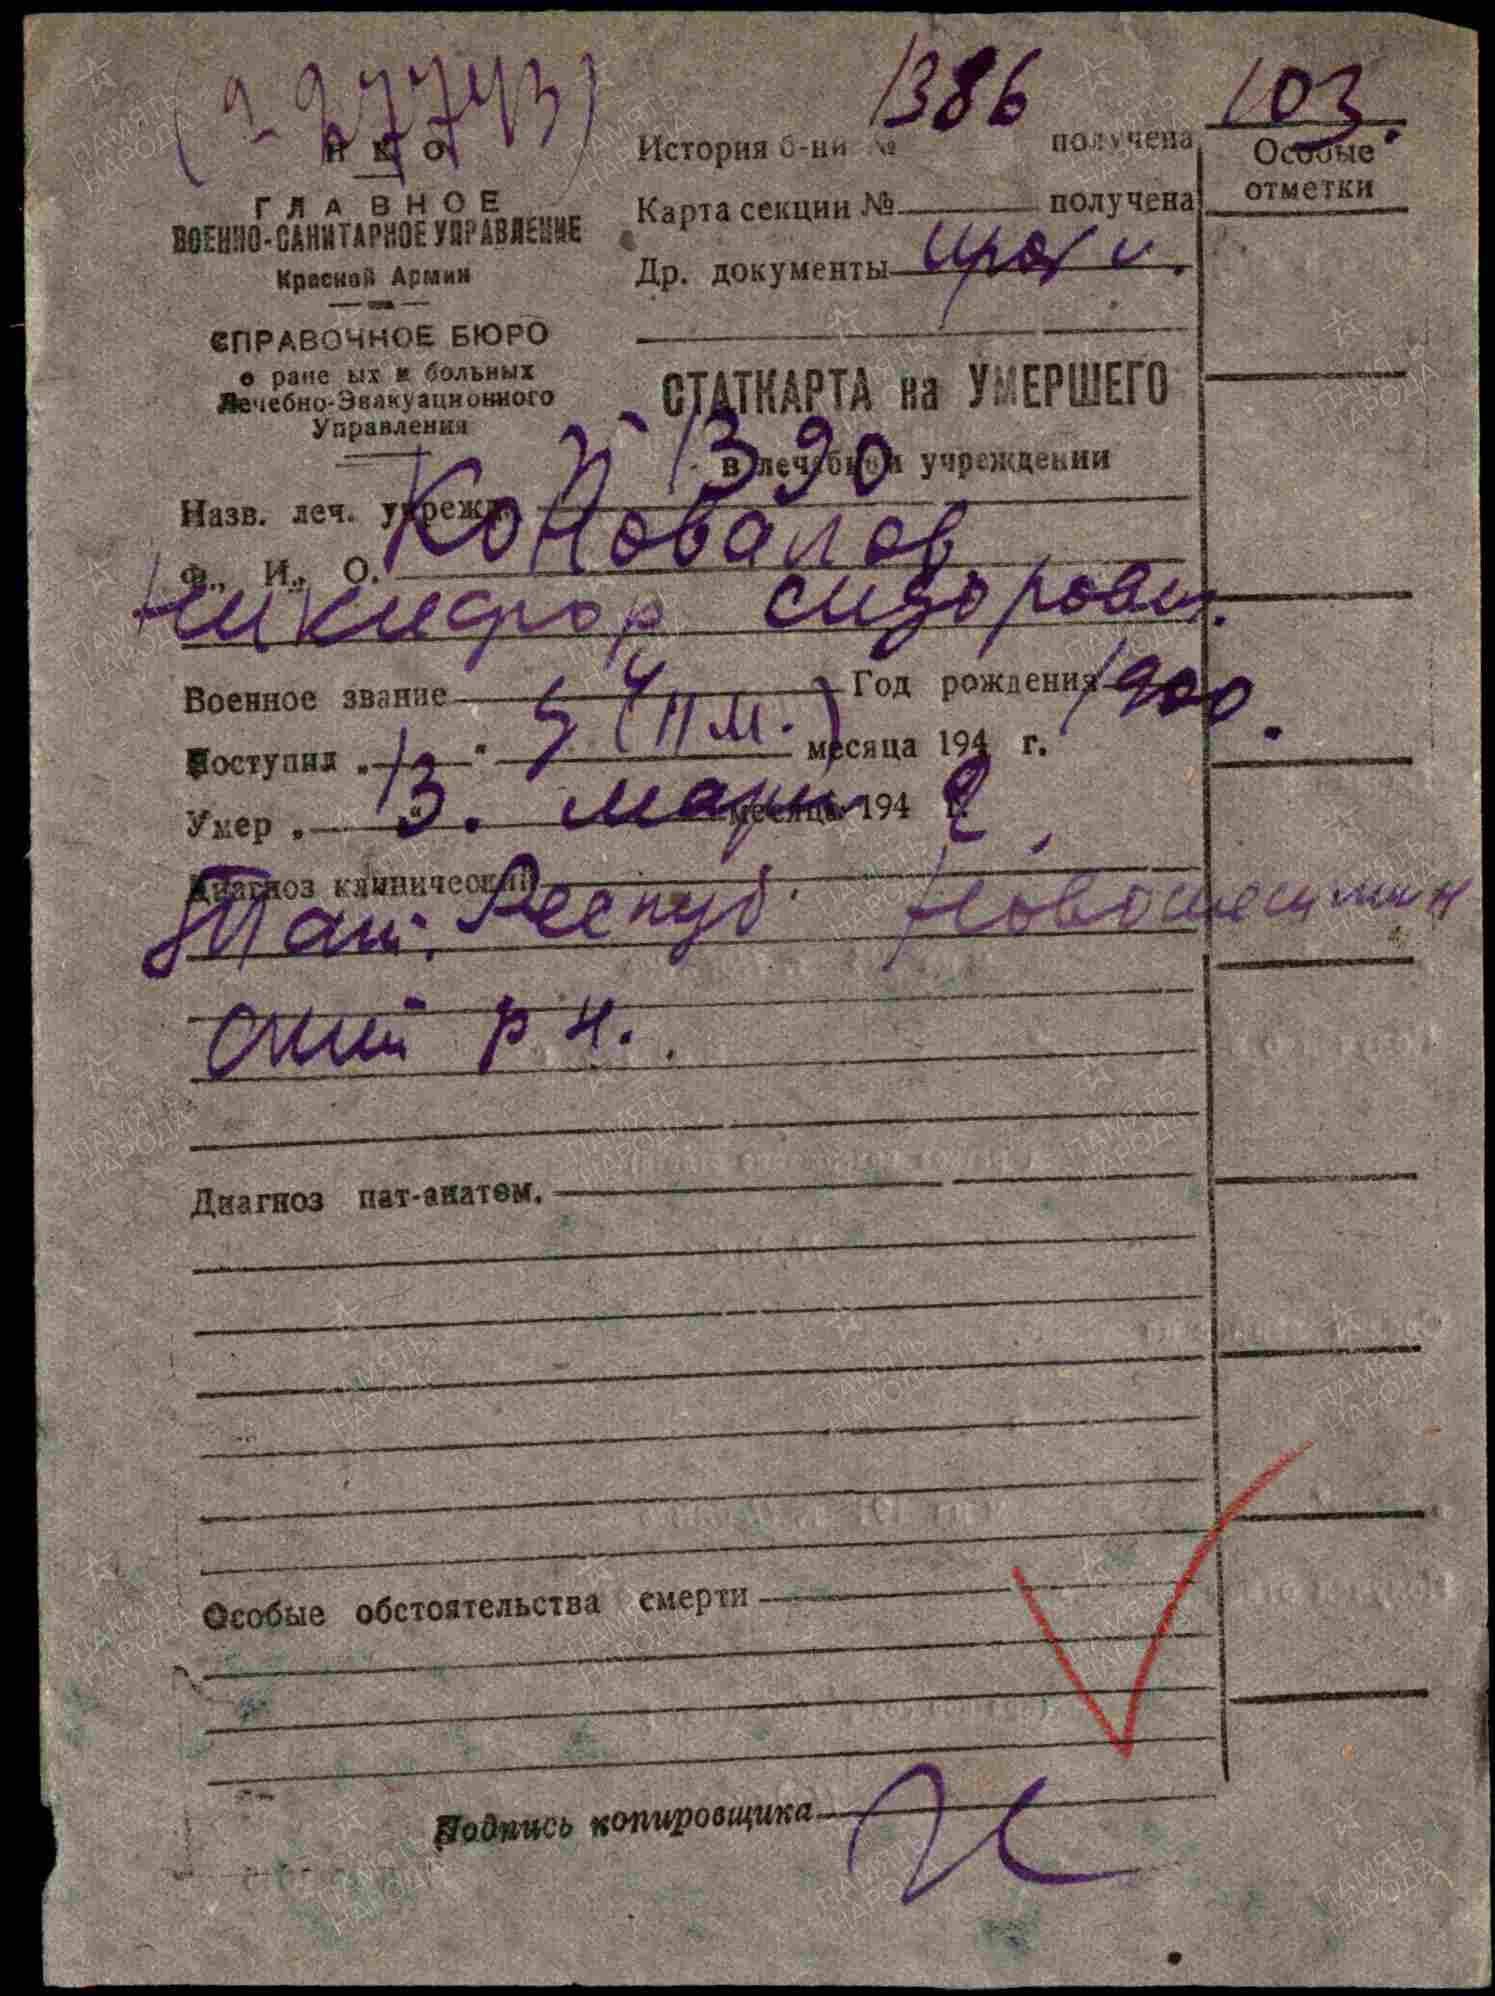 (2-27743)
НКО
ГЛАВНОЕ
ВОЕННО-САНИТАРНОЕ УПРАВЛЕНИЕ
Красной Армии
СПРАВОЧНОЕ БЮРО
о ране ых и больных
Лечебно-Эвакуационного
Управления
История б-ни № 1386 получена
Карта секции № получена
Др. документы
103.
Особые
отметки
СТАТКАРТА на УМЕРШЕГО
в лечебном учреждении
Назв. леч. учрежд. 1390
Ф., И., О. Коновалов
Никифор Сидорович.
Военное звание Год рождения 1900.
Поступил „ “ 5 месяца 194 г.
Умер „13. март месяца 194 2 г.
Диагноз клинический
Тат. Респуб. Новошешмин
ский р н.
Диагноз пат-анатом.
Особые обстоятельства смерти
Подпись копировщика
ПАМЯТЬ НАРОДА